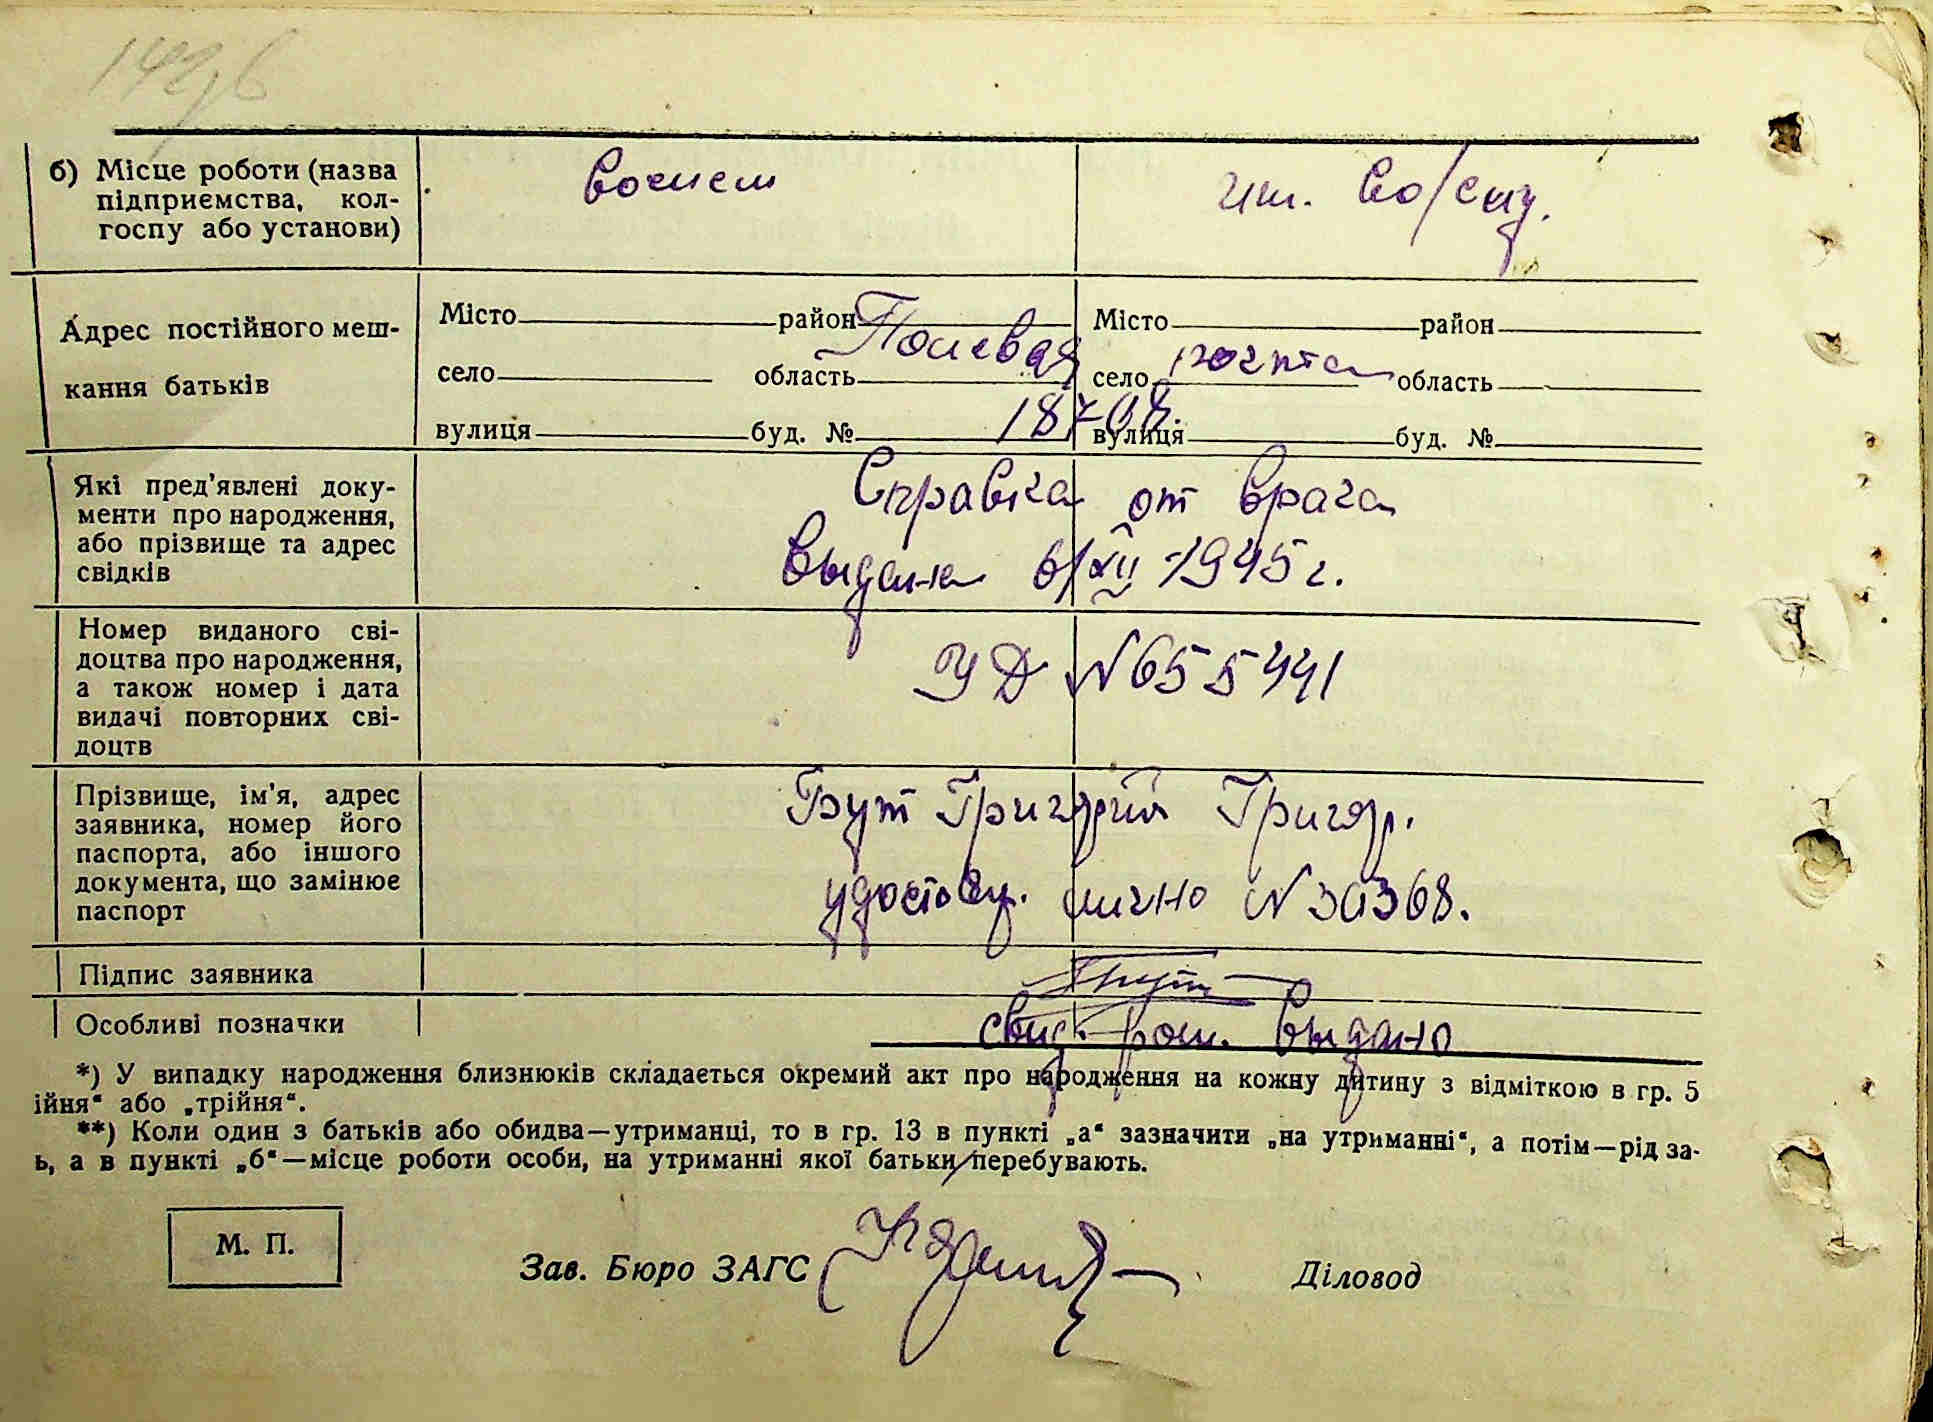 б) Місце роботи (назва
підприємства, кол-
госпу або установи)
Адрес постійного меш-
кання батьків
Місто район Місто район
Полевая почта
село область село область
вулиця буд. № вулиця буд. №
Які пред'явлені доку-
менти про народження,
або прізвище та адрес
свідків
Справка от врача
выдана 6/XII-1945 г.
Номер виданого сві-
доцтва про народження,
а також номер і дата
видачі повторних сві-
доцтв
УД N 655441
Прізвище, ім'я, адрес
заявника, номер його
паспорта, або іншого
документа, що замінює
паспорт
Григорий Григор.
удостовер. лично N 30368.
Підпис заявника
Особливі позначки
выдано
*) У випадку народження близнюків складається окремий акт про народження на кожну дитину з відміткою в гр. 5
ійня“ або „трійня“.
**) Коли один з батьків або обидва—утриманці, то в гр. 13 в пункті „а“ зазначити „на утриманні“, а потім—рід за-
ь, а в пункті „б“—місце роботи особи, на утриманні якої батьки перебувають.
М. П.
Зав. Бюро ЗАГС Діловод